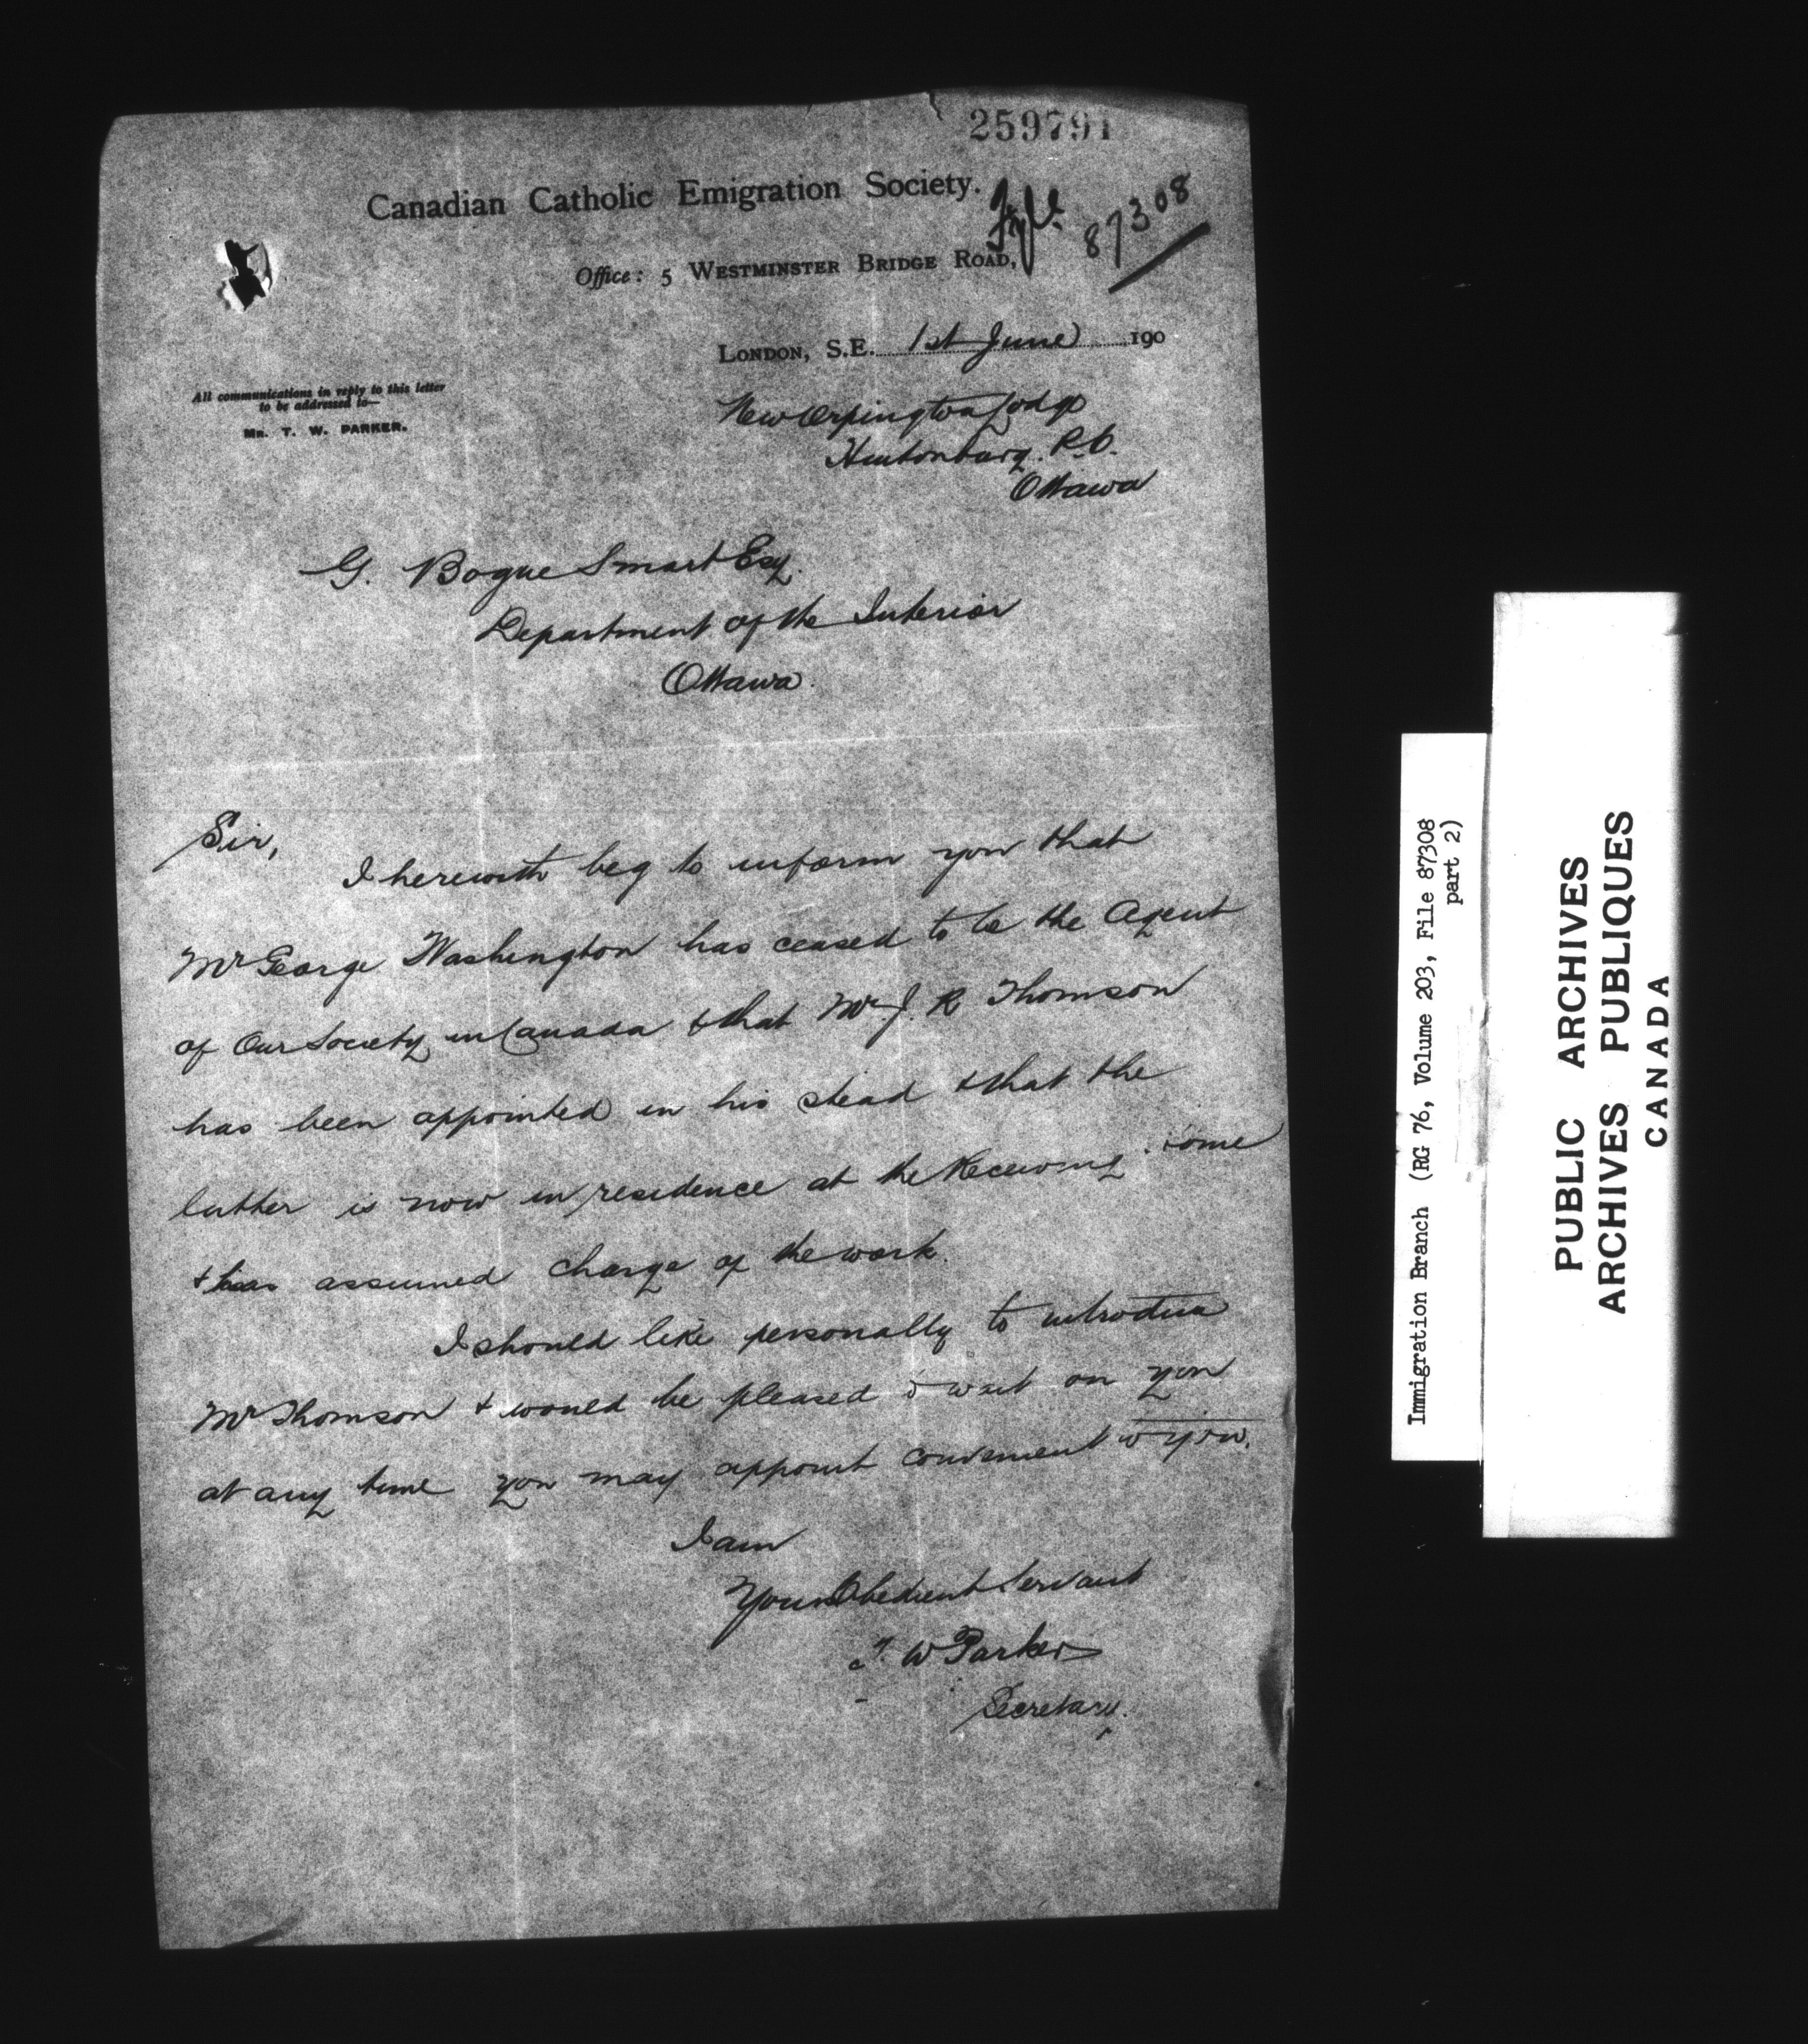 259791
Canadian Catholic Emigration Society.
File 87308
Office: 5 Westminster Bridge Road,
London, S.E. 1st June 190
All communications in reply to this letter
to be addressed to—
Mr. T. W. PARKER.
New Orpington Lodge
Hintonburg. P.O.
Ottawa
G. Bogue Smart Esq.
Department of the Interior
Ottawa.
Sir,
I herewith beg to inform you that
Mr George Washington has ceased to be the Agent
of Our Society in Canada & that Mr J. R Thomson
has been appointed in his stead & that the
latter is now in residence at the Receiving Home
& has assumed charge of the work.
I should like personally to introduce
Mr Thomson & would be pleased to wait on you
at any time you may appoint convenient to you.
I am
Your Obedient Servant
T. W Parker
Secretary.
Immigration Branch (RG 76, Volume 203, File 87308
part 2)
PUBLIC ARCHIVES
ARCHIVES PUBLIQUES
CANADA